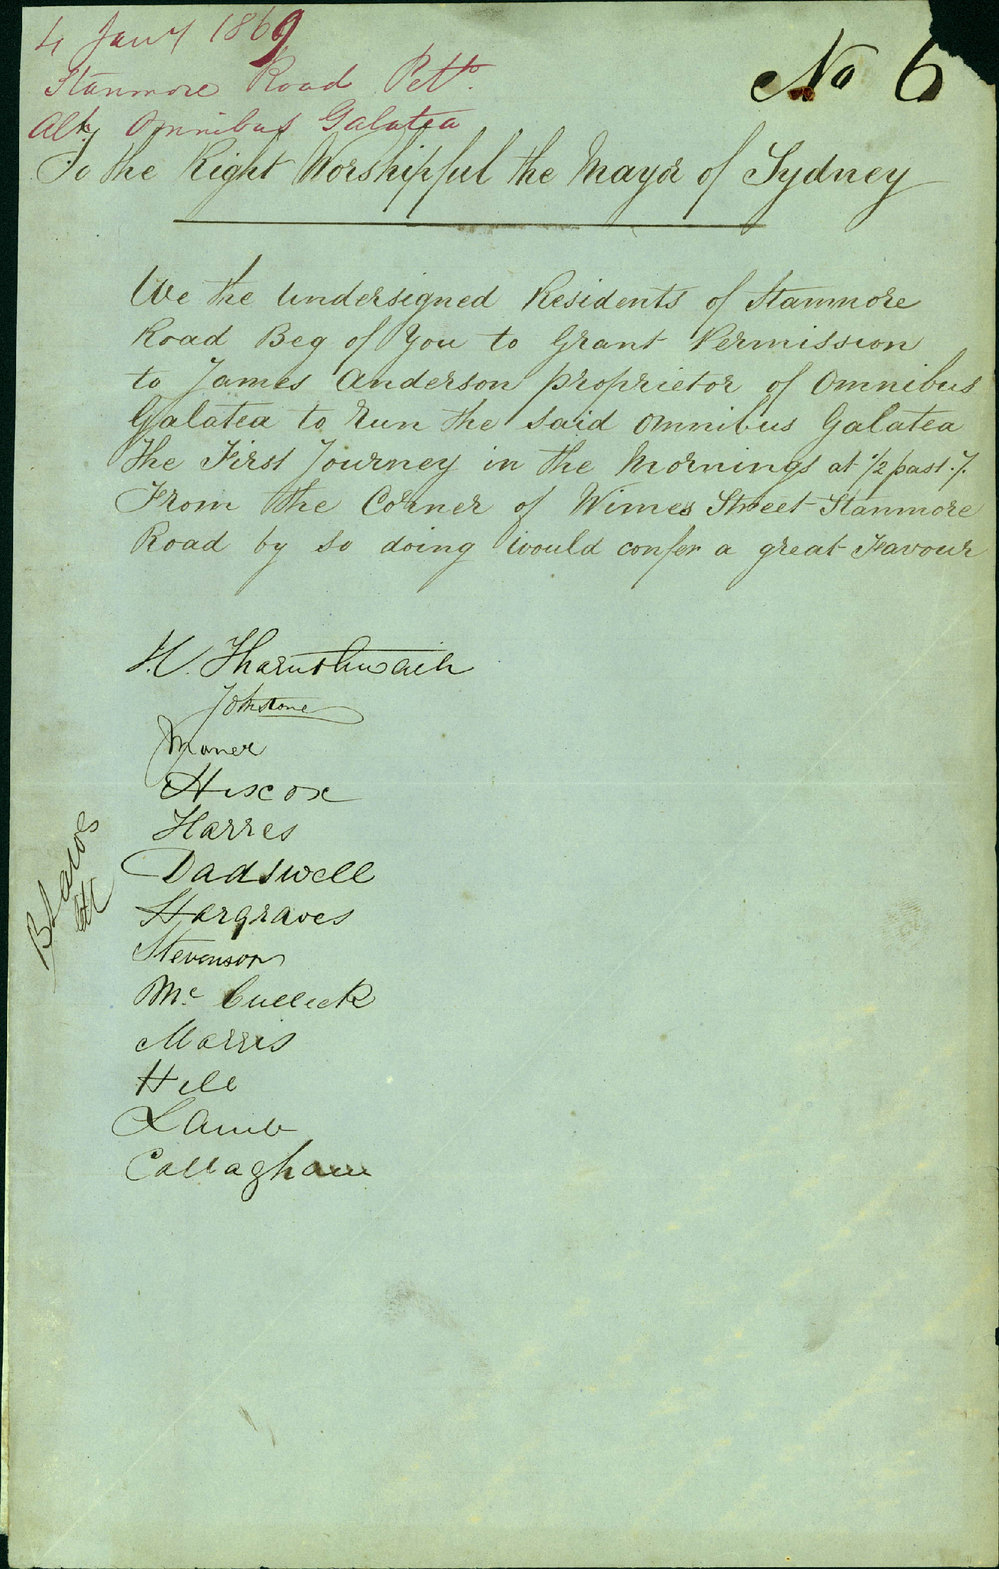 4 Jany 1869
Stanmore Road Pettn
Omnibus Galatea
No 6
To the Right Worshipful the Mayor of Sydney
We the Undersigned Residents of Stanmore
Road Beg of You to Grant Permission
to James Anderson proprietor of Omnibus
Galatea to Run the said Omnibus Galatea
The First Journey in the Mornings at 1/2 past 7.
From the Corner of Wimes Street Stanmore
Road by so doing would confer a great Favour
Johnstone
Hiscox
Harres
Dadswell
Hargraves
Stevenson
Mc Culleck
Morris
Hill
Lamb
Callagham